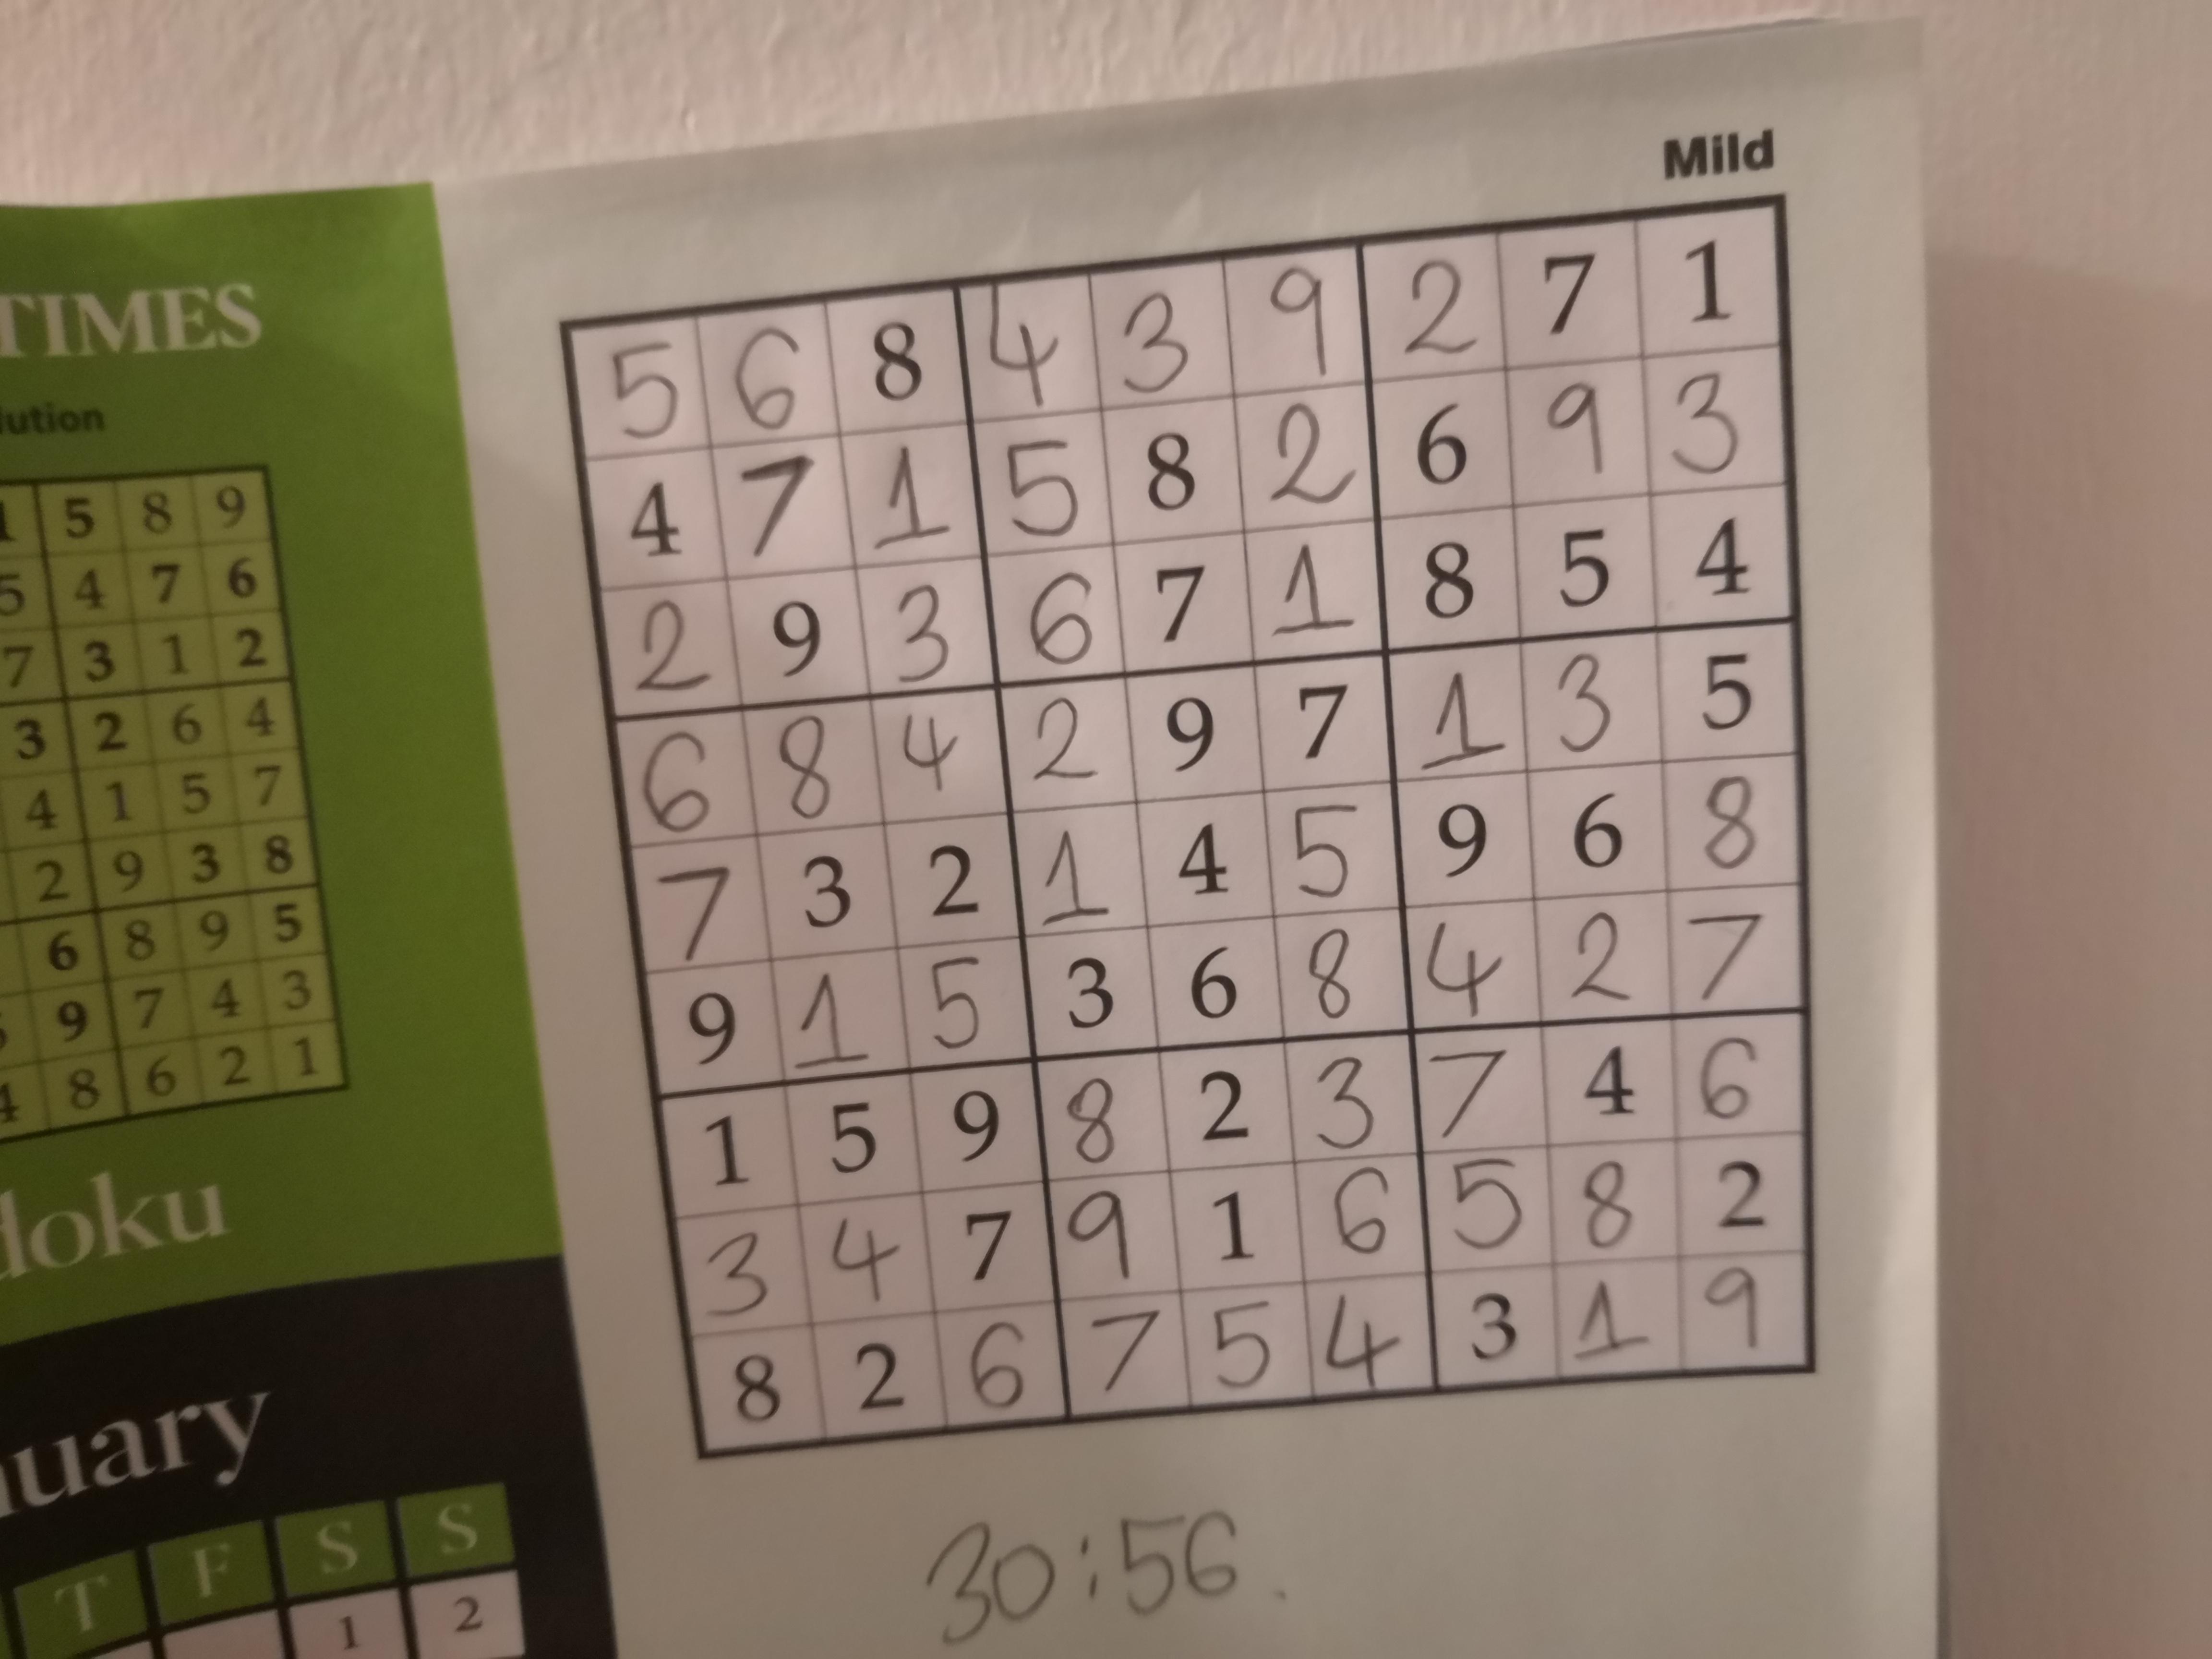 Mild
TIMES
lution
1 5 8 9
5 4 7 6
7 3 1 2
3 2 6 4
4 1 5 7
2 9 3 8
6 8 9 5
9 7 4 3
4 8 6 2 1
doku
nuary
T F S S
1 2
5 6 8 4 3 9 2 7 1
4 7 1 5 8 2 6 9 3
2 9 3 6 7 1 8 5 4
6 8 4 2 9 7 1 3 5
7 3 2 1 4 5 9 6 8
9 1 5 3 6 8 4 2 7
1 5 9 8 2 3 7 4 6
3 4 7 9 1 6 5 8 2
8 2 6 7 5 4 3 1 9
30:56.